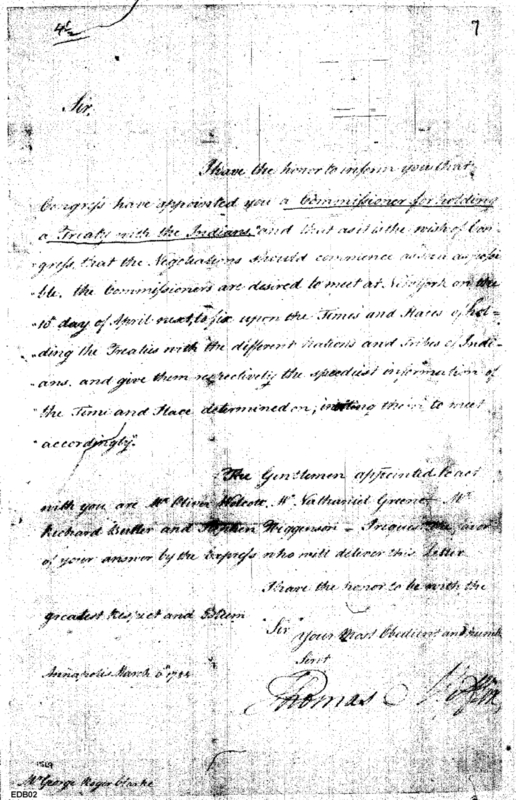 7
Sir,
I have the honor to inform you that
Congress have appointed you a Commissioner for holding
a Treaty with the Indians, and that as it is the wish of Con-
gress, that the Negotiations should commence as soon as possi-
ble, the Commissioners are desired to meet at New York on the
10th day of April next, to fix upon the Times and Places of hol-
ding the Treaties with the different Nations and Tribes of Indi-
ans, and give them respectively the speediest information of
the Time and Place determined on, inviting them to meet
accordingly.
The Gentlemen appointed to act
with you are Mr Oliver Wolcott, Mr Nathaniel Greene, Mr
Richard Butler and Stephen Higgenson – I request the favor
of your answer by the Express who will deliver this Letter
I have the honor to be with the
greatest Respect and Esteem
Sir
Your Most Obedient and humb
Servt
Annapolis March 6th 1784
Thomas Mifflin
Mr George Roger Clarke
EDB02